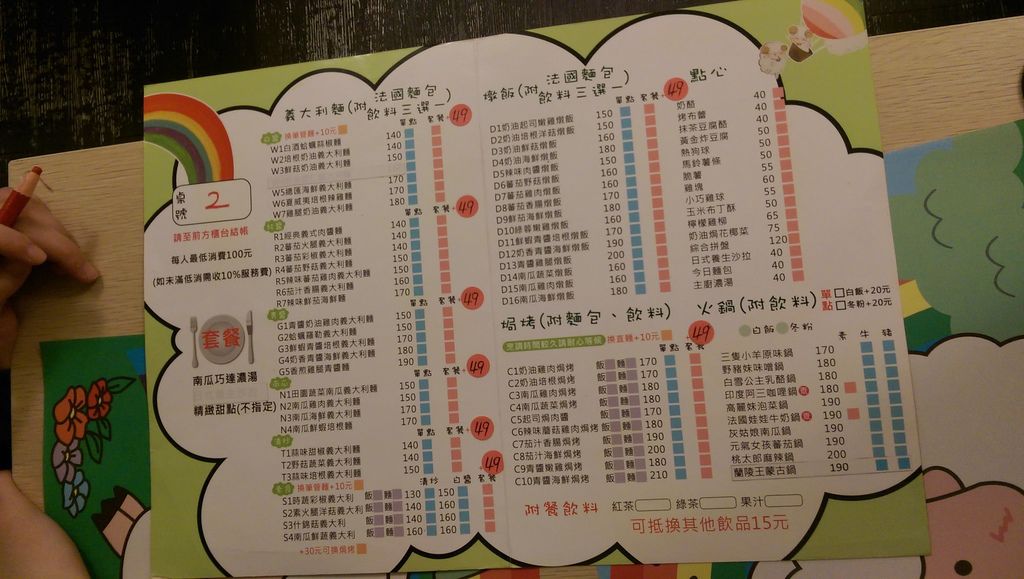 桌號 2
請至前方櫃台結帳
每人最低消費100元
(如未滿低消需收10%服務費)
套餐
南瓜巧達濃湯
精緻甜點(不指定)
義大利麵(附法國麵包 飲料三選一)
單點 套餐+49
白醬 換筆管麵+10元
W1白酒蛤蠣蒜椒麵 140
W2培根奶油義大利麵 140
W3鮮菇奶油義大利麵 150
W5總匯海鮮義大利麵 170
W6夏威夷培根辣雞麵 170
W7雞腿奶油義大利麵 180
單點 套餐+49
紅醬
R1經典義式肉醬麵 140
R2蕃茄火腿義大利麵 140
R3蕃茄彩椒義大利麵 140
R4蕃茄野菇義大利麵 150
R5辣味蕃茄雞肉義大利麵 150
R6茄汁香腸義大利麵 160
R7辣味鮮茄海鮮麵 170
單點 套餐+49
青醬
G1青醬奶油雞肉義大利麵 150
G2蛤蠣羅勒義大利麵 150
G3鮮蝦青醬培根義大利麵 170
G4奶香青醬海鮮義大利麵 180
G5香煎雞腿青醬麵 190
單點 套餐+49
南瓜
N1田園蔬菜南瓜義大利麵 150
N2南瓜雞肉義大利麵 150
N3南瓜海鮮義大利麵 170
N4南瓜鮮蝦培根麵 170
單點 套餐+49
清炒
T1蒜味甜椒義大利麵 140
T2野菇蔬菜義大利麵 140
T3蒜味培根義大利麵 150
清炒 白醬 套餐+49
素食 換筆管麵+10元
S1時蔬彩椒義大利 飯 麵 130 150
S2素火腿洋菇義大利 飯 麵 140 150
S3什錦菇義大利 飯 麵 140 160
S4南瓜鮮蔬義大利 飯 麵 160 160
+30元可換焗烤
燉飯(附法國麵包 飲料三選一)
單點 套餐+49
D1奶油起司嫩雞燉飯 150
D2奶油培根洋菇燉飯 150
D3奶油鮮菇燉飯 160
D4奶油海鮮燉飯 180
D5辣味肉醬燉飯 150
D6蕃茄野菇燉飯 150
D7蕃茄雞肉燉飯 160
D8蕃茄香腸燉飯 170
D9鮮茄海鮮燉飯 180
D10綠蓉嫩雞燉飯 160
D11鮮蝦青醬培根燉飯 170
D12奶香青醬海鮮燉飯 190
D13青醬雞腿燉飯 200
D14南瓜蔬菜燉飯 160
D15南瓜雞肉燉飯 160
D16南瓜海鮮燉飯 180
點心
奶酪 40
烤布蕾 40
抹茶豆腐酪 40
黃金炸豆腐 40
熱狗球 50
馬鈴薯條 50
脆薯 50
雞塊 55
小巧雞球 60
玉米布丁酥 50
檸檬雞柳 75
奶油焗花椰菜 65
綜合拼盤 120
日式養生沙拉 40
今日麵包 40
主廚濃湯 40
焗烤(附麵包、飲料)
烹調時間較久請耐心等候 換直麵+10元
單點 套餐+49
C1奶油雞肉焗烤 飯 麵 170
C2奶油培根焗烤 飯 麵 160
C3南瓜雞肉焗烤 飯 麵 180
C4南瓜蔬菜焗烤 飯 麵 180
C5起司焗肉醬 飯 麵 170
C6辣味蘑菇雞肉焗烤 飯 麵 190
C7茄汁香腸焗烤 飯 麵 190
C8茄汁海鮮焗烤 飯 麵 190
C9青醬嫩雞焗烤 飯 麵 180
C10青醬海鮮焗烤 飯 麵 210
火鍋(附飲料)
單點 白飯+20元 冬粉+20元
白飯 冬粉
素 牛 豬
三隻小羊原味鍋 170
野豬妹味噌鍋 180
白雪公主乳酪鍋 180
印度阿三咖哩鍋 180
高麗妹泡菜鍋 190
法國娃娃牛奶鍋 190
灰姑娘南瓜鍋 190
元氣女孩蕃茄鍋 190
桃太郎麻辣鍋 200
蘭陵王蒙古鍋 190
附餐飲料 紅茶 綠茶 果汁
可抵換其他飲品15元